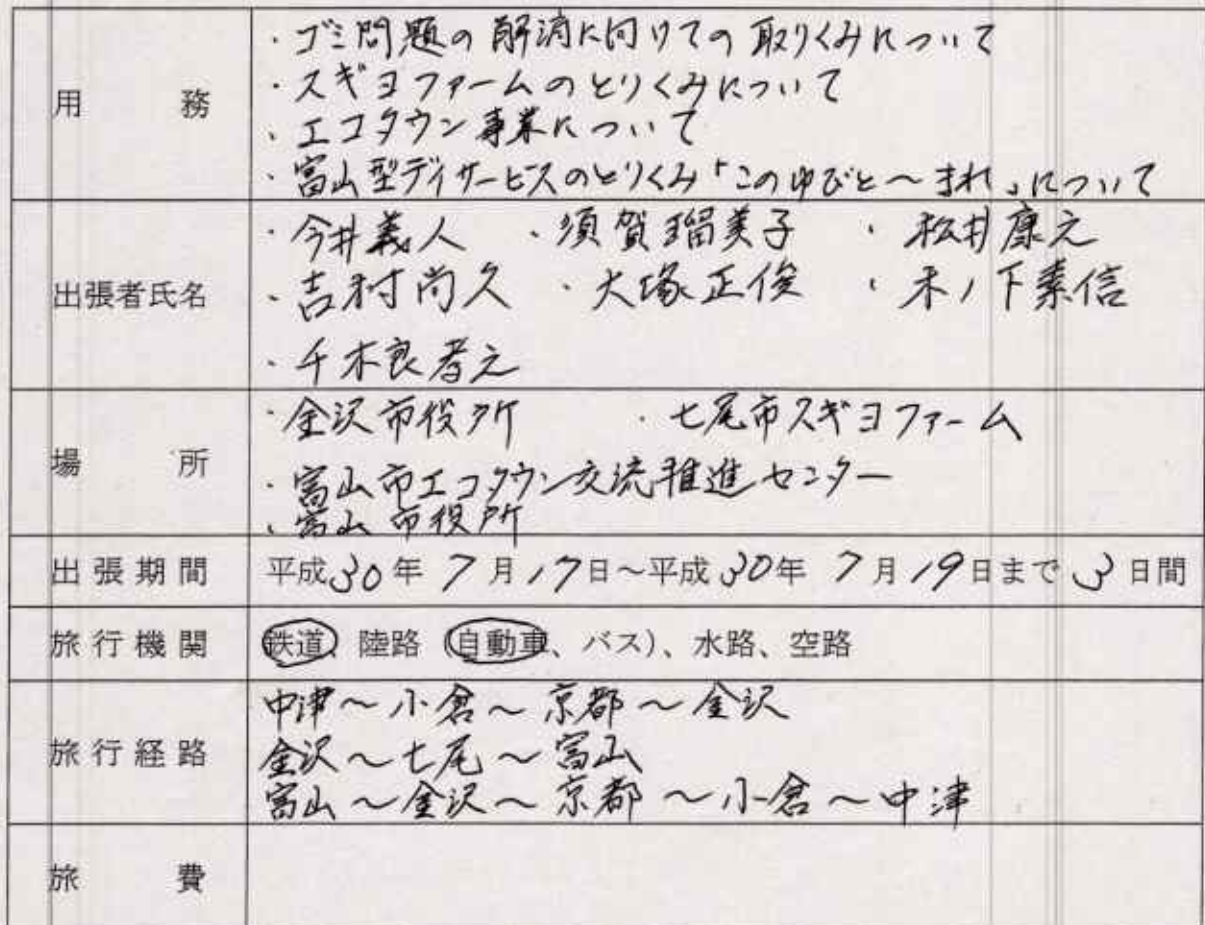 用務
・ゴミ問題の解消に向けての取りくみについて
・スギヨファームのとりくみについて
・エコタウン事業について
・富山型デイサービスのとりくみ「このゆびと〜まれ」について
出張者氏名
・今井義人 ・須賀瑠美子 ・松井康之
・吉村尚久 ・大塚正俊 ・木ノ下素信
・千木良孝之
場所
・金沢市役所 ・七尾市スギヨファーム
・富山市エコタウン交流推進センター
・富山市役所
出張期間 平成30年 7月17日〜平成30年 7月19日まで 3日間
旅行機関 鉄道、陸路(自動車、バス)、水路、空路
旅行経路
中津〜小倉〜京都〜金沢
金沢〜七尾〜富山
富山〜金沢〜京都〜小倉〜中津
旅費